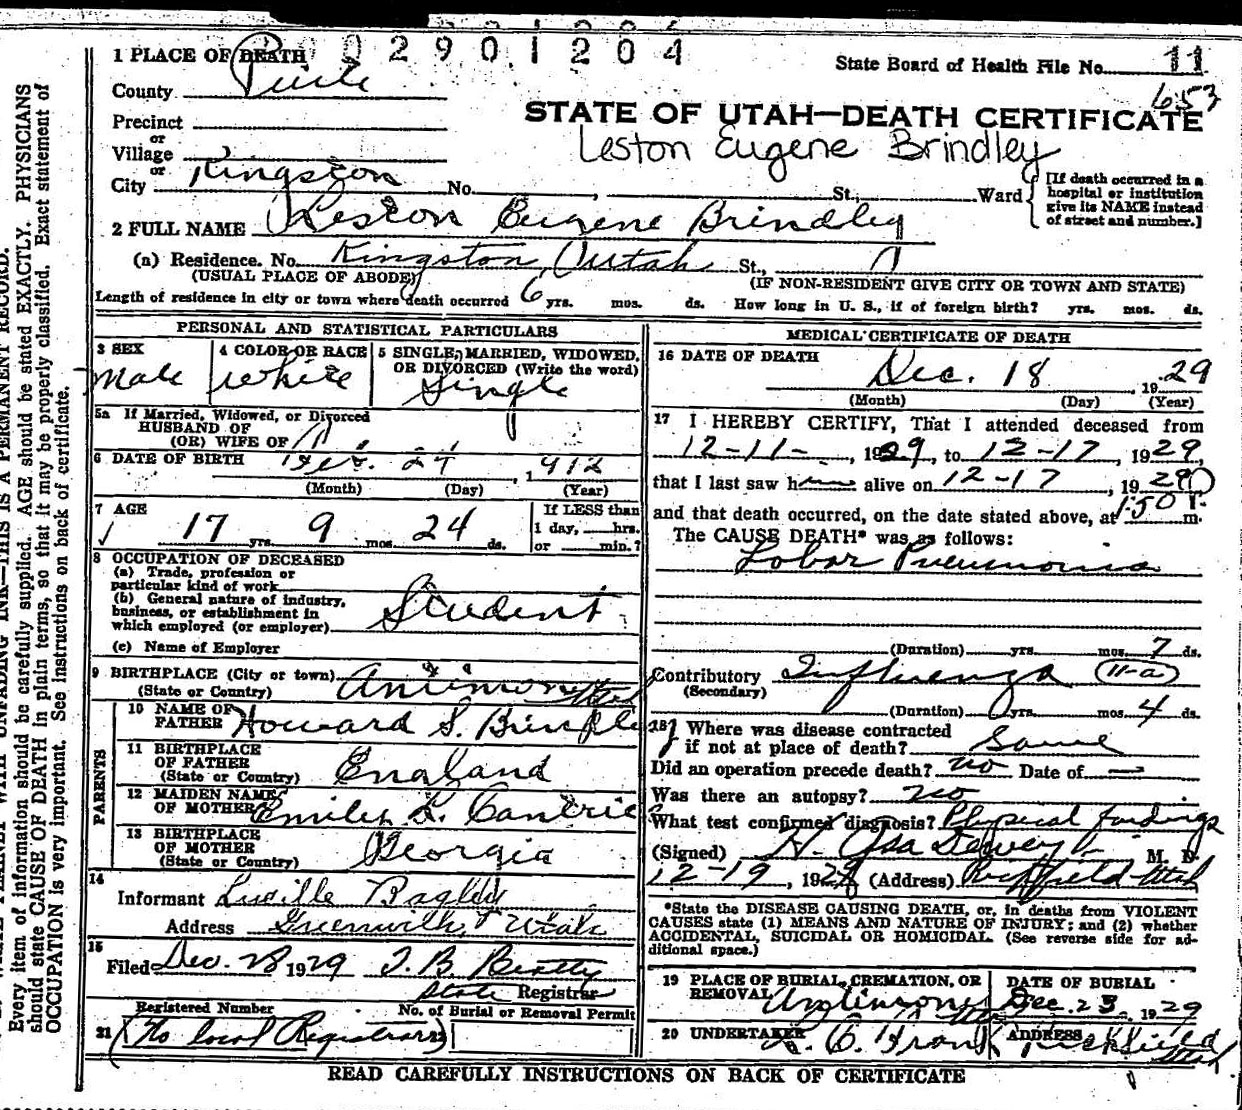 02901204
1 PLACE OF DEATH
State Board of Health File No. 11
653
County Piute
STATE OF UTAH—DEATH CERTIFICATE
Precinct
or
Leston Eugene Brindley
Village
or
City Kingston No. , St. Ward
[If death occurred in a
hospital or institution
give its NAME instead
of street and number.]
2 FULL NAME Leston Eugene Brindley
(a) Residence. No. Kingston, Utah St.,
(USUAL PLACE OF ABODE) (IF NON-RESIDENT GIVE CITY OR TOWN AND STATE)
Length of residence in city or town where death occurred 6 yrs. mos. ds. How long in U. S., if of foreign birth? yrs. mos. ds.
PERSONAL AND STATISTICAL PARTICULARS
3 SEX
Male
4 COLOR OR RACE
White
5 SINGLE, MARRIED, WIDOWED,
OR DIVORCED (Write the word)
Single
5a If Married, Widowed, or Divorced
HUSBAND OF
(OR) WIFE OF
6 DATE OF BIRTH 24, 1912
(Month) (Day) (Year)
7 AGE
17 yrs. 9 mos. 24 ds.
If LESS than
1 day, hrs.
or min.?
8 OCCUPATION OF DECEASED
(a) Trade, profession or
particular kind of work
(b) General nature of industry,
business, or establishment in
which employed (or employer)
Student
(c) Name of Employer
9 BIRTHPLACE (City or town)
(State or Country) Antimony Utah
PARENTS
10 NAME OF
FATHER Howard S.
11 BIRTHPLACE
OF FATHER
(State or Country) England
12 MAIDEN NAME
OF MOTHER
13 BIRTHPLACE
OF MOTHER
(State or Country) Georgia
14
Informant Lucille Bagley
Address Greenwich, Utah
15
Filed Dec. 28 1929
State Registrar
Registered Number No. of Burial or Removal Permit
21 (No local Registrar)
MEDICAL CERTIFICATE OF DEATH
16 DATE OF DEATH
Dec. 18, 1929
(Month) (Day) (Year)
17 I HEREBY CERTIFY, That I attended deceased from
12-11-, 1929, to 12-17, 1929,
that I last saw h alive on 12-17, 1929
and that death occurred, on the date stated above, at 1:50 P. m.
The CAUSE DEATH* was as follows:
Lobar Pneumonia
(Duration) yrs. mos. 7 ds.
Contributory Influenza 11-a
(Secondary)
(Duration) yrs. mos. 4 ds.
18 Where was disease contracted
if not at place of death? Same
Did an operation precede death? no Date of —
Was there an autopsy? no
What test confirmed diagnosis? Physical findings
(Signed) M. D.
12-19, 1929 (Address) Richfield Utah
*State the DISEASE CAUSING DEATH, or, in deaths from VIOLENT
CAUSES state (1) MEANS AND NATURE OF INJURY; and (2) whether
ACCIDENTAL, SUICIDAL OR HOMICIDAL. (See reverse side for ad-
ditional space.)
19 PLACE OF BURIAL, CREMATION, OR
REMOVAL Antimony Utah
DATE OF BURIAL
Dec. 23, 1929
20 UNDERTAKER
ADDRESS Richfield
Utah
READ CAREFULLY INSTRUCTIONS ON BACK OF CERTIFICATE
THIS IS A PERMANENT RECORD.
Every item of information should be carefully supplied. AGE should be stated EXACTLY. PHYSICIANS
should state CAUSE OF DEATH in plain terms, so that it may be properly classified. Exact statement of
OCCUPATION is very important. See instructions on back of certificate.